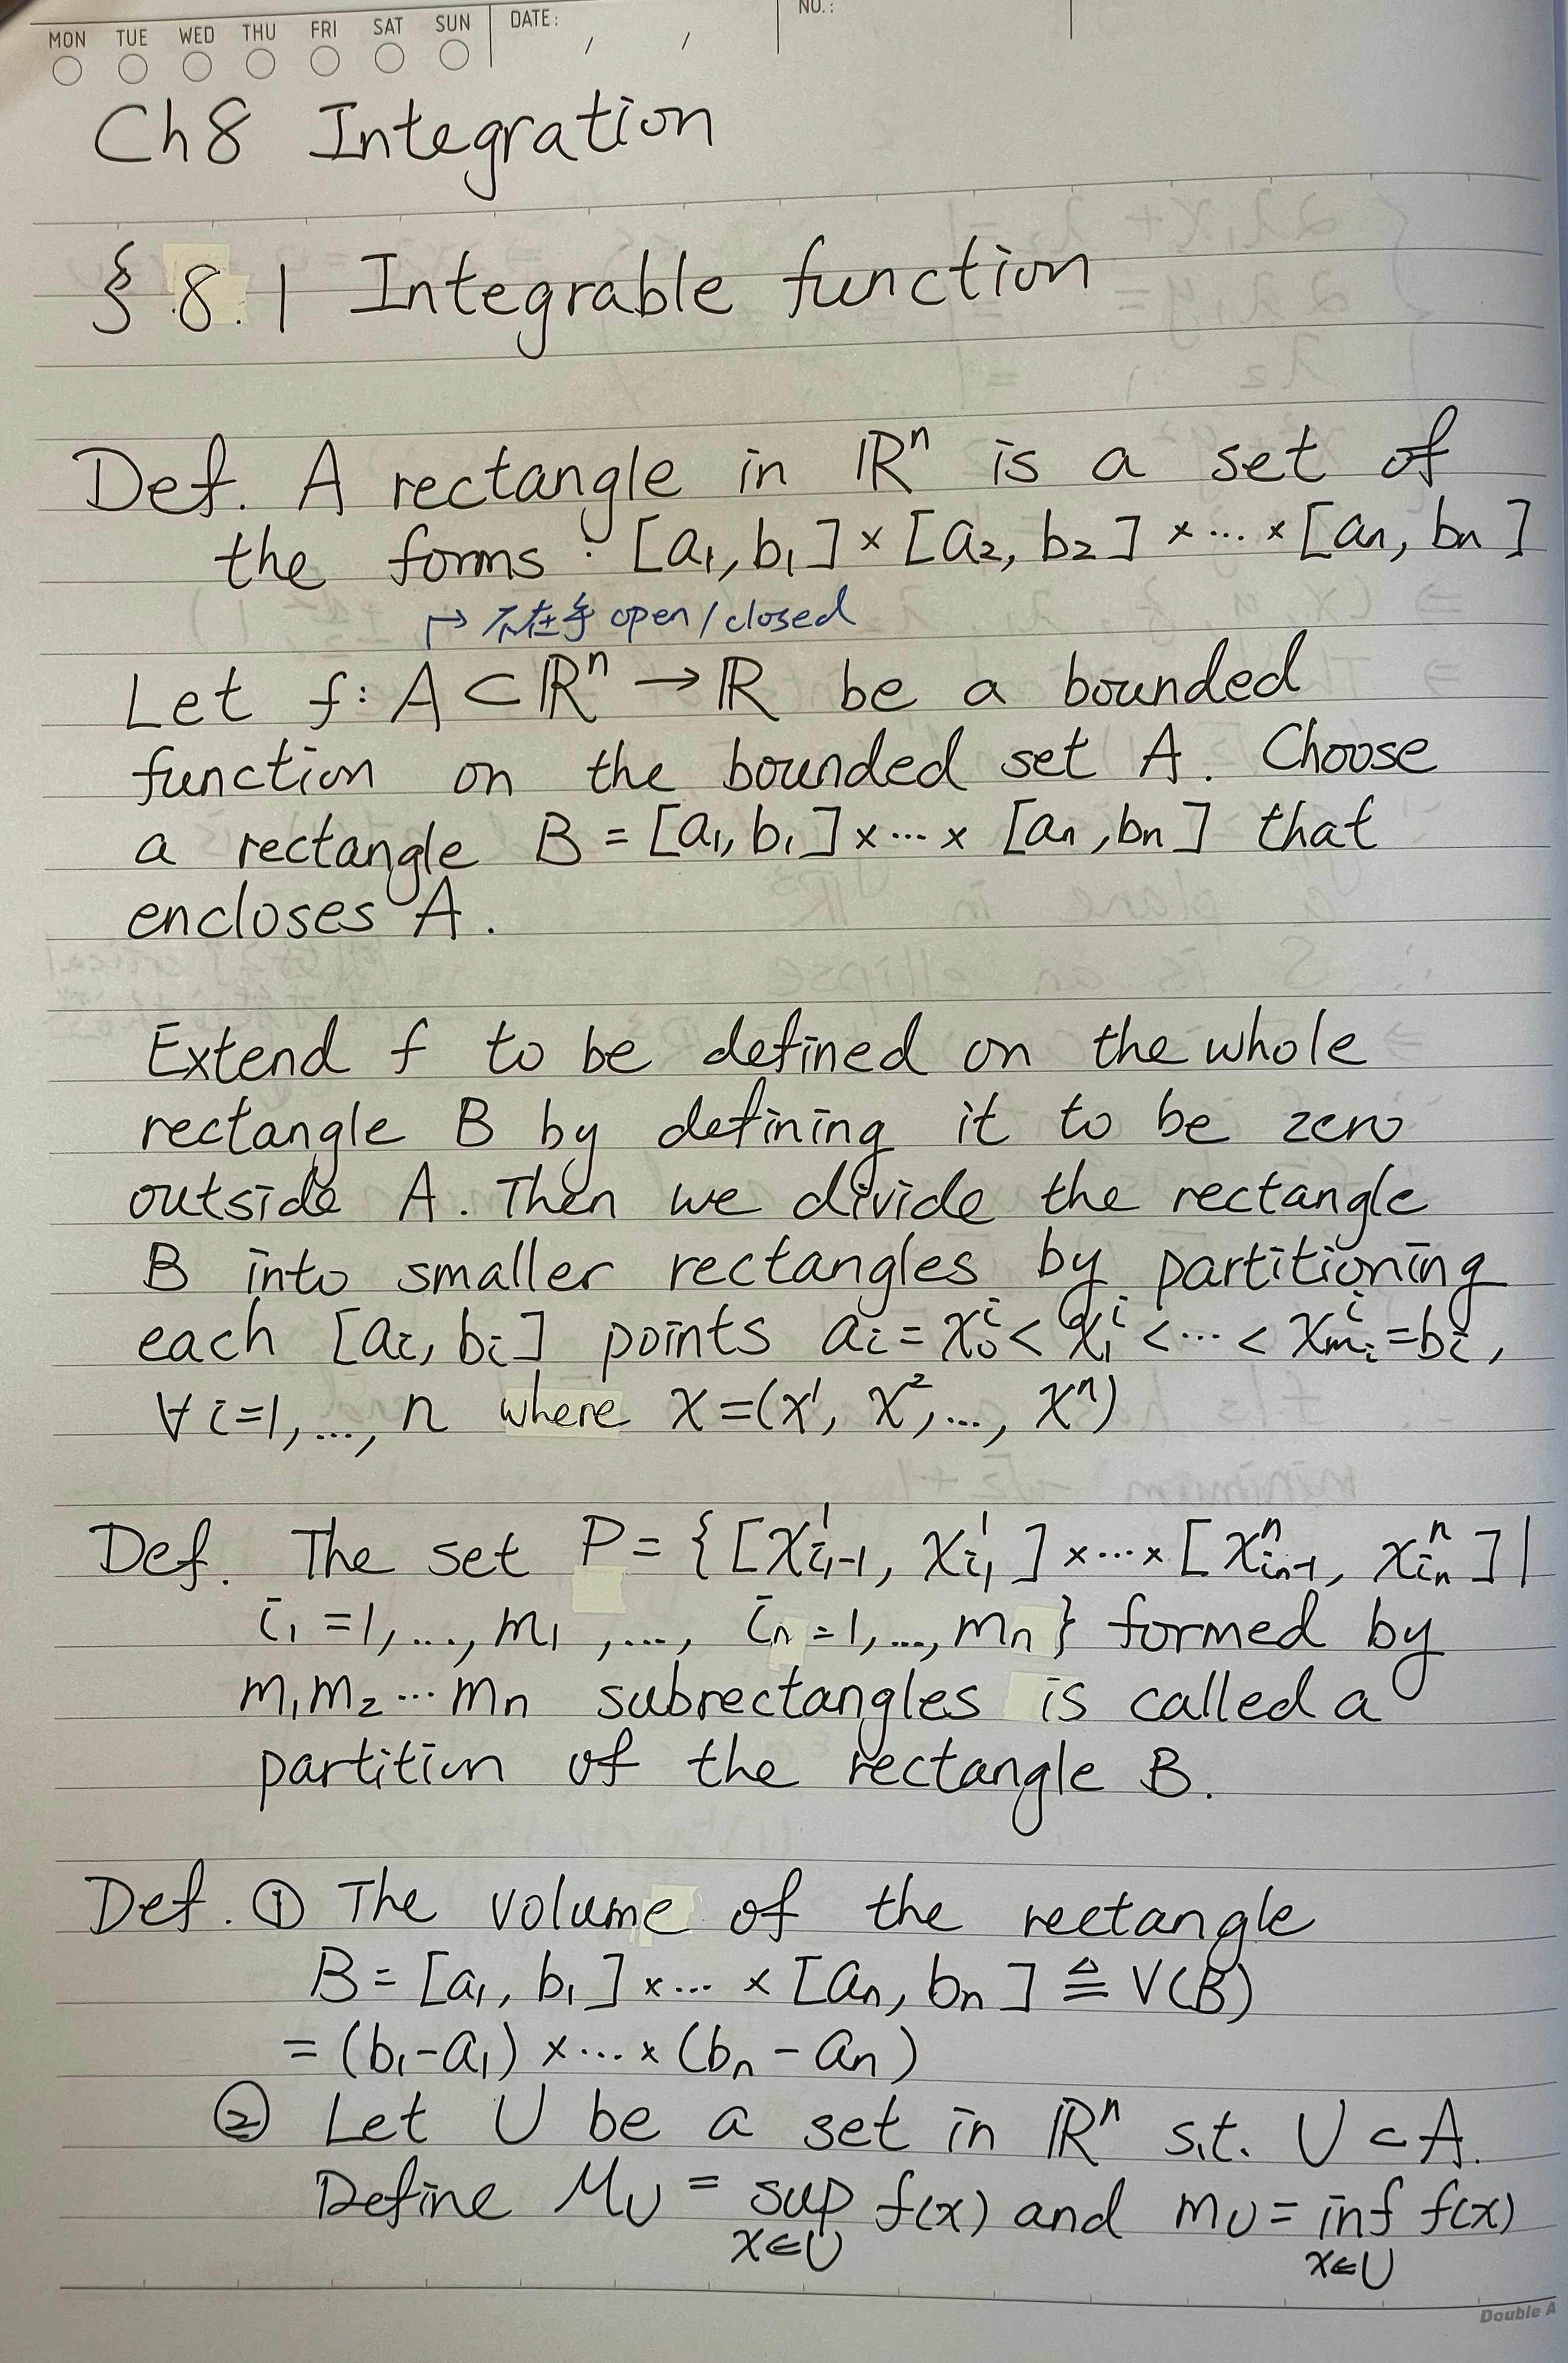 MON TUE WED THU FRI SAT SUN DATE: / / NO.:
Ch8 Integration
§ 8.1 Integrable function
Def. A rectangle in ℝⁿ is a set of
the forms : [a₁, b₁] × [a₂, b₂] × ... × [aₙ, bₙ]
↦ 不在乎 open / closed
Let f: A ⊂ ℝⁿ → ℝ be a bounded
function on the bounded set A. Choose
a rectangle B = [a₁, b₁] × ... × [aₙ, bₙ] that
encloses A.
Extend f to be defined on the whole
rectangle B by defining it to be zero
outside A. Then we divide the rectangle
B into smaller rectangles by partitioning
each [aᵢ, bᵢ] points aᵢ = x₀ⁱ < x₁ⁱ < ... < x_{mᵢ}ⁱ = bᵢ,
∀ i=1, ..., n where x = (x¹, x², ..., xⁿ)
Def. The set P = { [x¹_{i₁-1}, x¹_{i₁}] × ... × [xⁿ_{iₙ-1}, xⁿ_{iₙ}] |
i₁ = 1, ..., m₁, ..., iₙ = 1, ..., mₙ } formed by
m₁m₂ ... mₙ subrectangles is called a
partition of the rectangle B.
Def. ① The volume of the rectangle
B = [a₁, b₁] × ... × [aₙ, bₙ] ≜ V(B)
= (b₁-a₁) × ... × (bₙ - aₙ)
② Let U be a set in ℝⁿ s.t. U ⊂ A.
Define M_U = sup f(x) and m_U = inf f(x)
x∈U x∈U
Double A